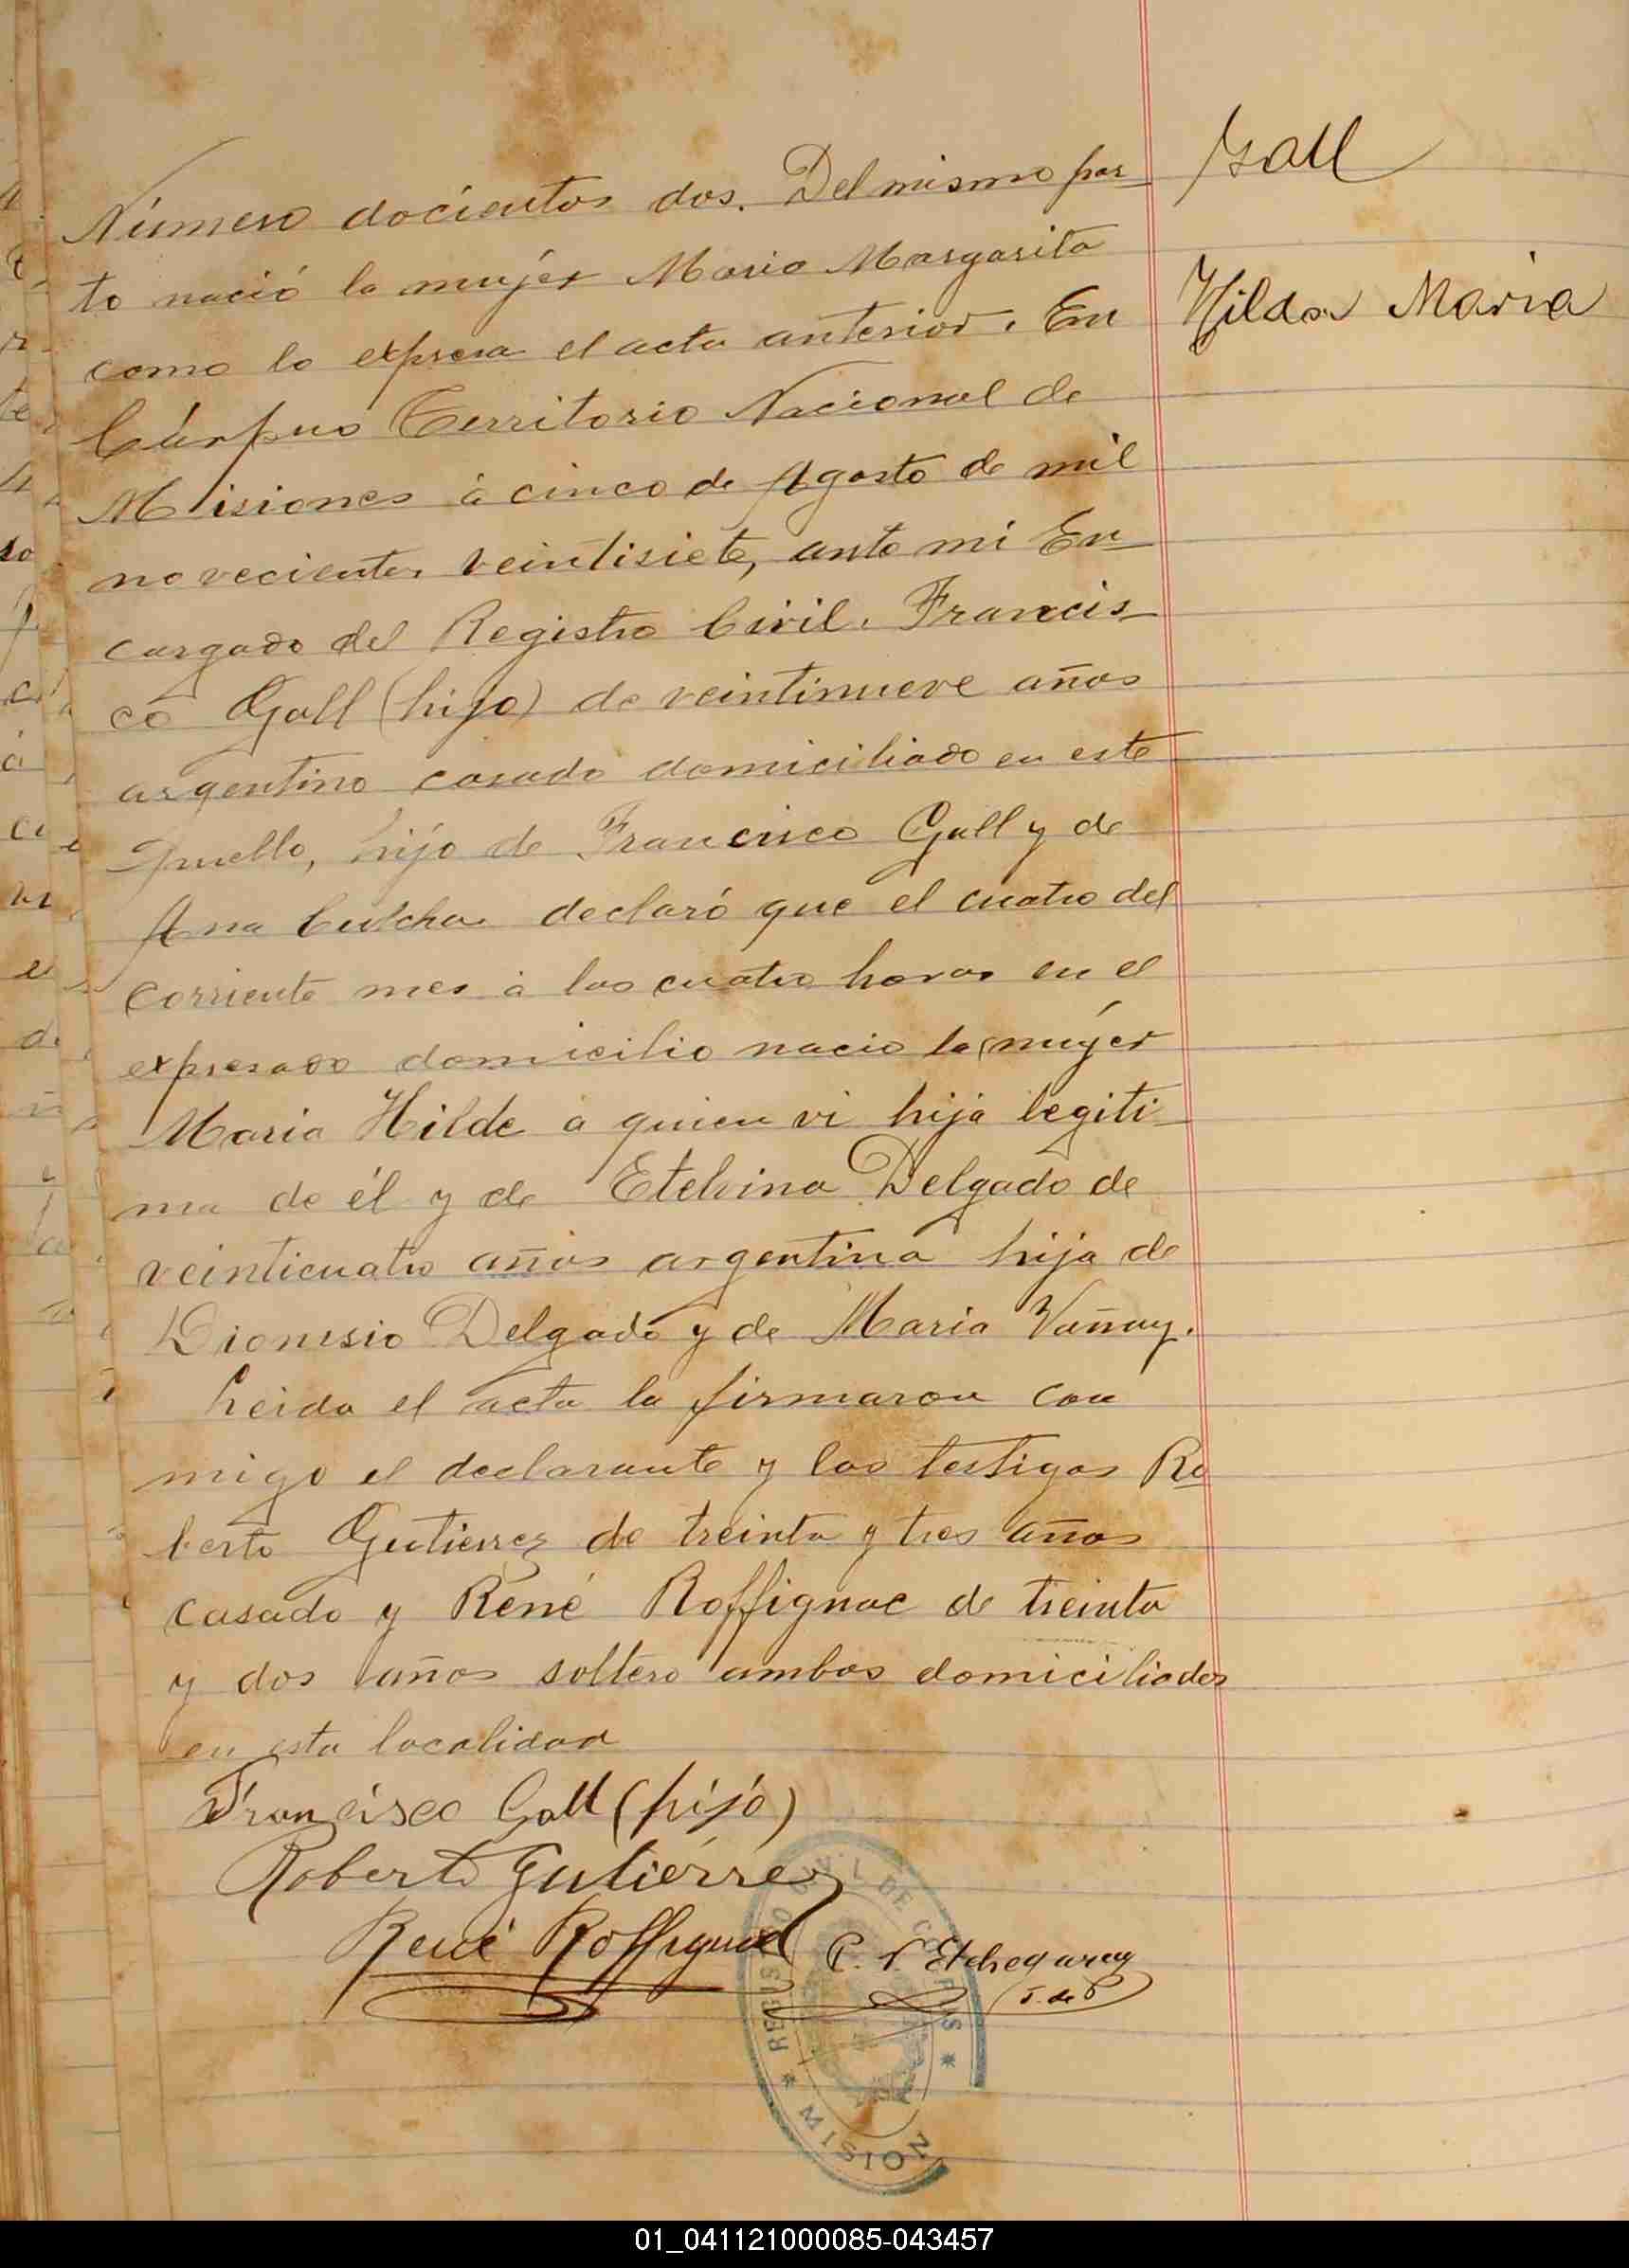 Gall
Hilda Maria
Número docientos dos. Del mismo par-
to nació la mujer Maria Margarita
como lo expresa el acta anterior. En
Córpus Territorio Nacional de
Misiones á cinco de Agosto de mil
novecientos veintisiete, ante mi En-
cargado del Registro Civil, Francis-
co Gall (hijo) de veintinueve años
argentino casado domiciliado en este
Pueblo, hijo de Francisco Gall y de
Ana Culcha declaró que el cuatro del
corriente mes á las cuatro horas en el
expresado domicilio nacio la mujer
Maria Hilde a quien vi hija legiti-
ma de él y de Etelvina Delgado de
veinticuatro años argentina hija de
Dionisio Delgado y de Maria Vañay.
Leida el acta la firmaron con
migo el declarante y los testigos Ro
berto Gutierrez de treinta y tres años
casado y René Roffignac de treinta
y dos años soltero ambos domiciliados
en esta localidad
Francisco Gall (hijo)
Roberto Gutiérrez
René Roffignac
P. V. Etchegaray
J. de P
REGISTRO CIVIL DE CORPUS
* MISION *
01_041121000085-043457